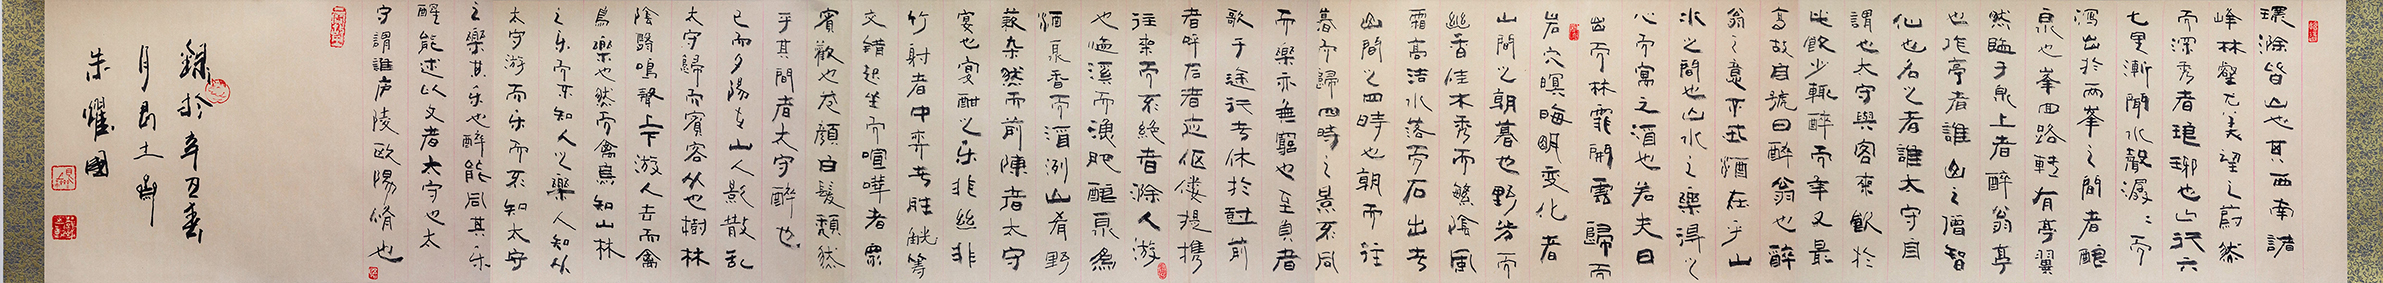 環滁皆山也其西南諸
峰林壑尤美望之蔚然
而深秀者琅琊也山行六
七里漸聞水聲潺〻而
瀉出於兩峯之間者釀
泉也峯回路轉有亭翼
然臨于泉上者醉翁亭
也作亭者誰山之僧智
仙也名之者誰太守自
謂也太守與客來飲於
此飲少輒醉而年又最
高故自號曰醉翁也醉
翁之意不在酒在乎山
水之間也山水之樂得之
心而寓之酒也若夫日
出而林霏開雲歸而
岩穴暝晦明變化者
山間之朝暮也野芳而
幽香佳木秀而繁陰風
霜高洁水落而石出者
山間之四時也朝而往
暮而歸四時之景不同
而樂亦無窮也至負者
歌于途行者休於樹前
者呼后者应伛偻提携
往来而不絶者滁人游
也临溪而漁肥釀泉為
酒泉香而酒洌山肴野
蔌杂然而前陳者太守
宴也宴酣之乐非丝非
竹射者中弈者胜觥筹
交錯起坐而喧嘩者眾
賓歡也苍顏白髮頹然
乎其間者太守醉也
已而夕陽在山人影散乱
太守歸而賓客从也樹林
陰翳鳴聲上下游人去而禽
鳥樂也然而禽鳥知山林
之乐而不知人之樂人知从
太守游而乐而不知太守
之樂其乐也醉能同其乐
醒能述以文者太守也太
守謂誰庐陵歐陽脩也
錄於辛丑春
月
朱耀國